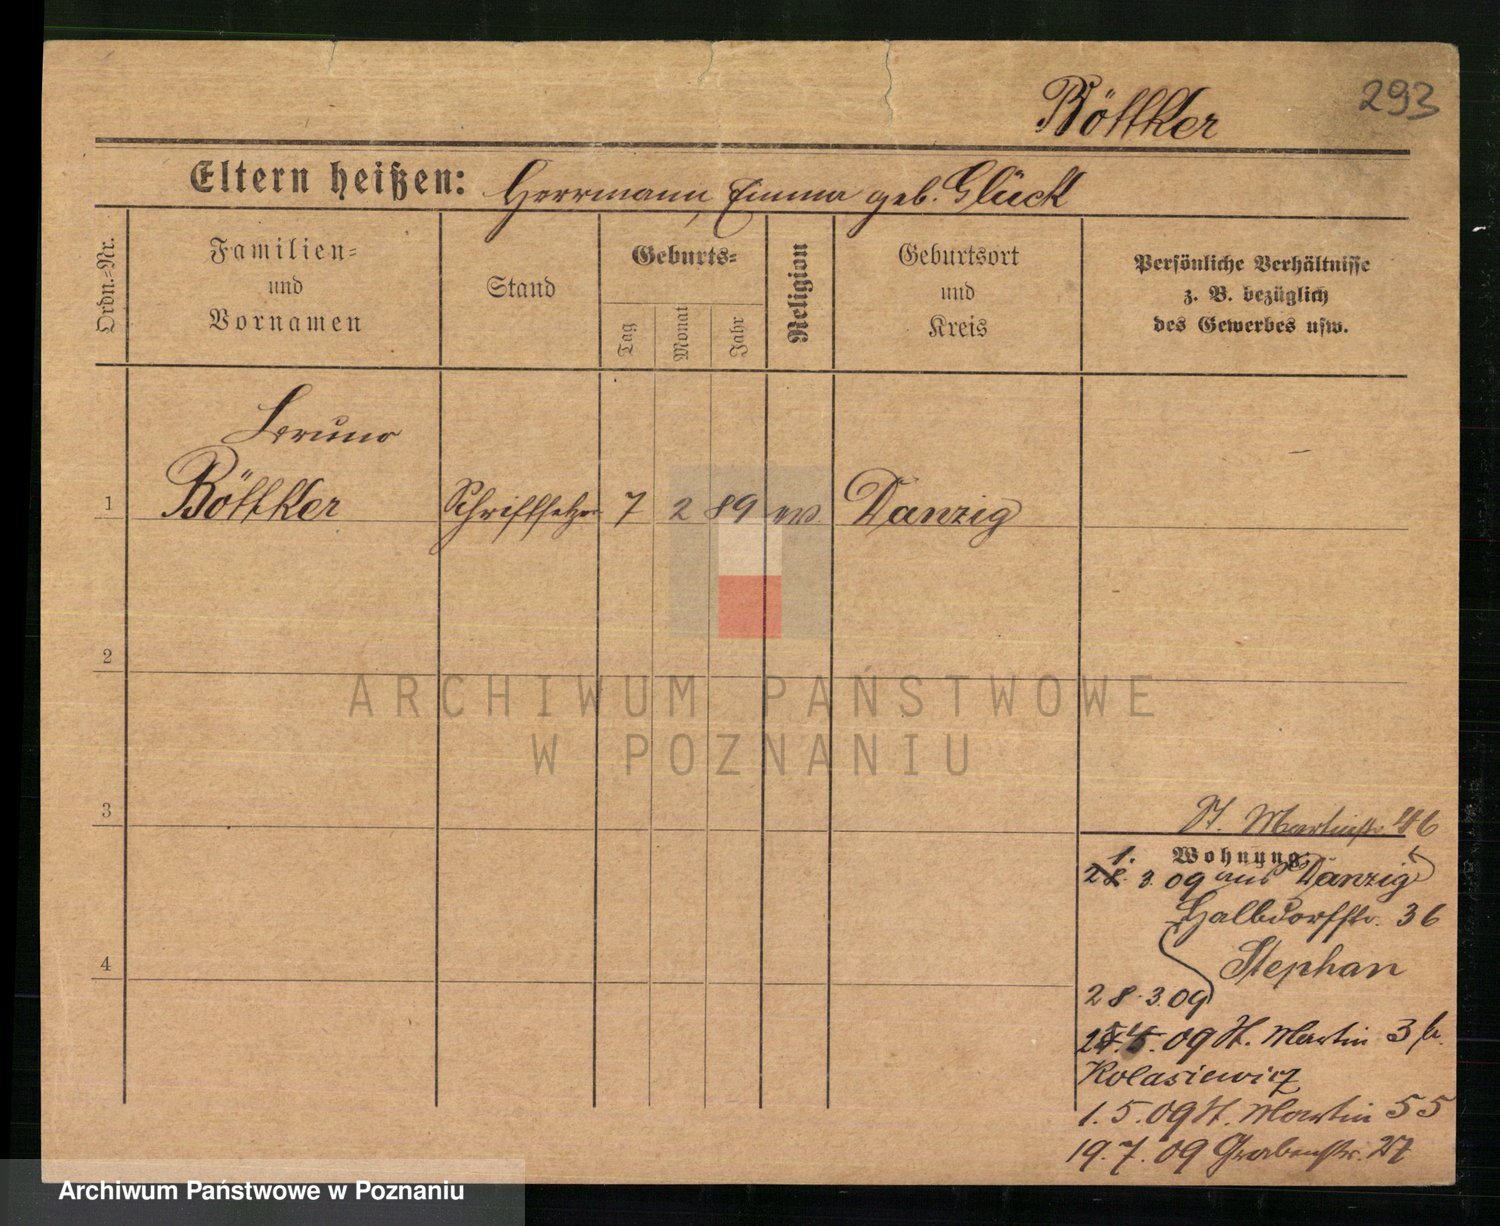 293
Böttker
Eltern heißen: Herrmann, Emma geb. Glück
Ordn.-Nr.
Familien- und Vornamen
Stand
Geburts-
Tag
Monat
Jahr
Religion
Geburtsort und Kreis
Persönliche Verhältnisse
z. B. bezüglich
des Gewerbes usw.
Bruno
1 Böttker Schriftsetzer 7 2 89 ev. Danzig
2
ARCHIWUM PAŃSTWOWE
W POZNANIU
3
St. Martinstr. 46
Wohnung:
1. 3. 09 aus Danzig
Halbdorfstr. 36
Stephan
4
28. 3. 09
09 St. Martin 3 b.
Kolasiewicz
1. 5. 09 St. Martin 55
19. 7. 09 Grabenstr. 27
Archiwum Państwowe w Poznaniu